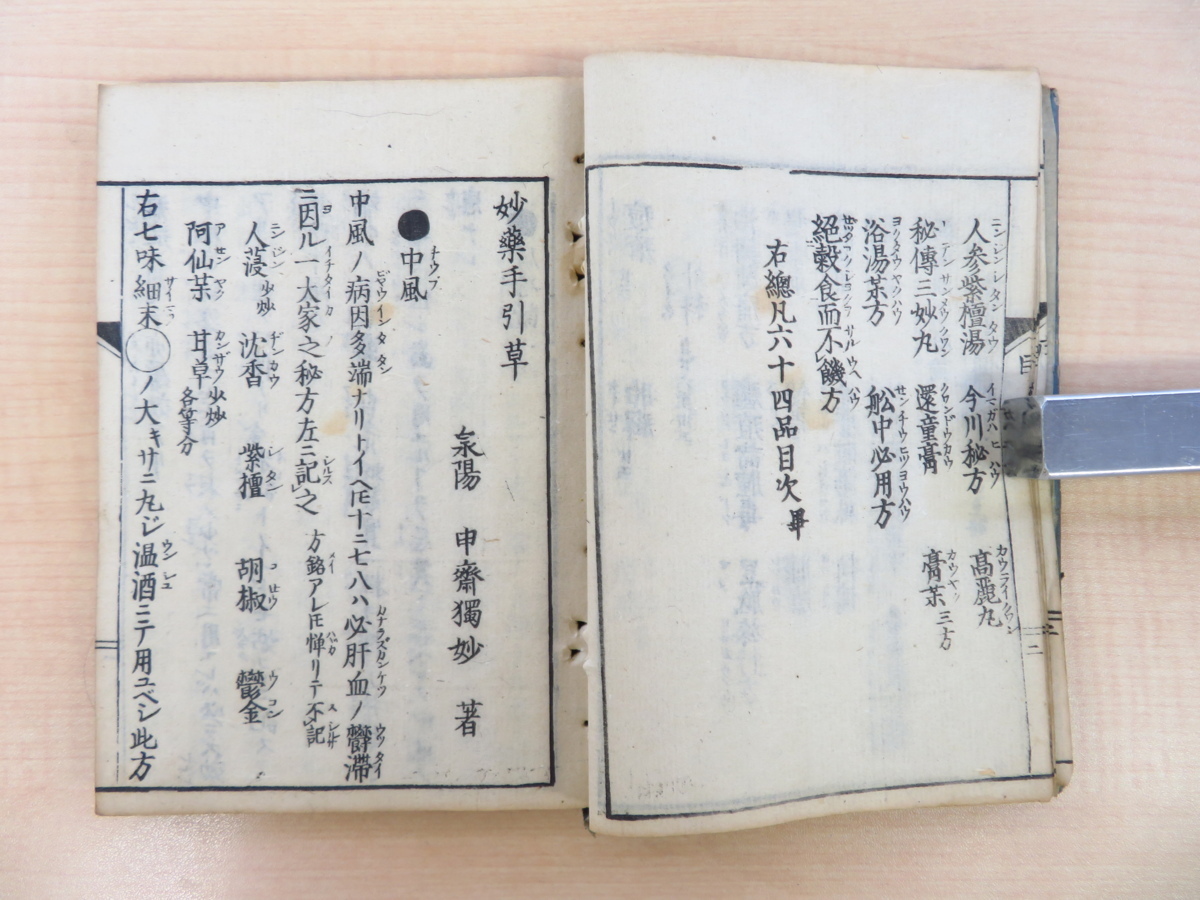 人参紫檀湯 今川秘方 高麗丸
秘傳三妙丸 還童膏 膏茱三方
浴湯茱方 舩中必用方
絕穀食而不饑方
右總凡六十四品目次畢
目
妙藥手引草
泉陽 申齋獨妙 著
●中風
中風ノ病因多端ナリトイヘ𪜈十ニ七八ハ必肝血ノ鬱滞
ニ因ル一大家之秘方左ニ記之 方銘アレ𪜈憚リテ不記
人蓡少炒 沈香 紫檀 胡椒 鬱金
阿仙茱 甘草少炒 各等分
右七味細末◯ノ大キサニ丸ジ温酒ニテ用ユベシ此方